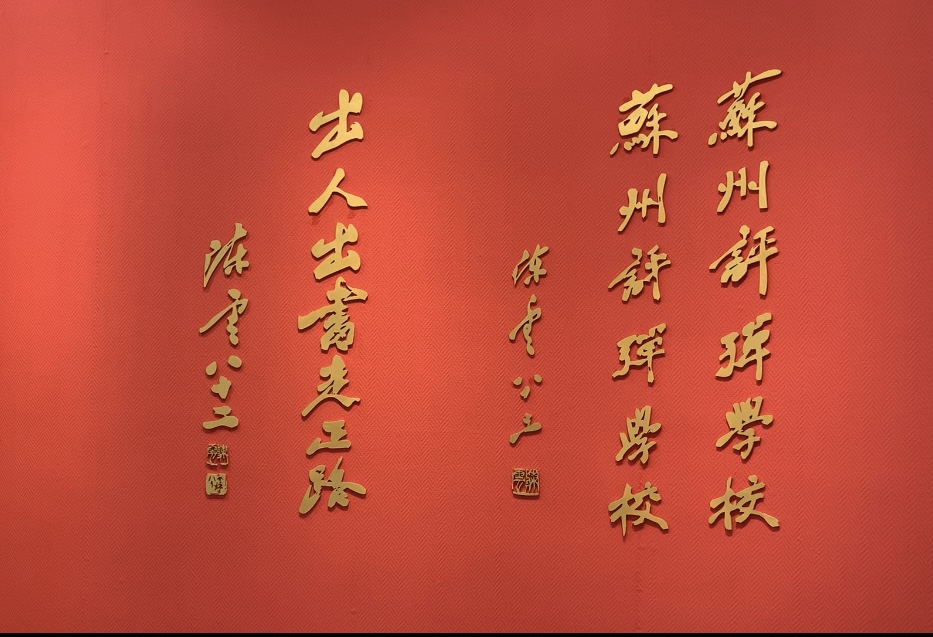 蘇州評彈學校
蘇州評彈學校
陳雲 八五
出人出書走正路
陳雲 八十二